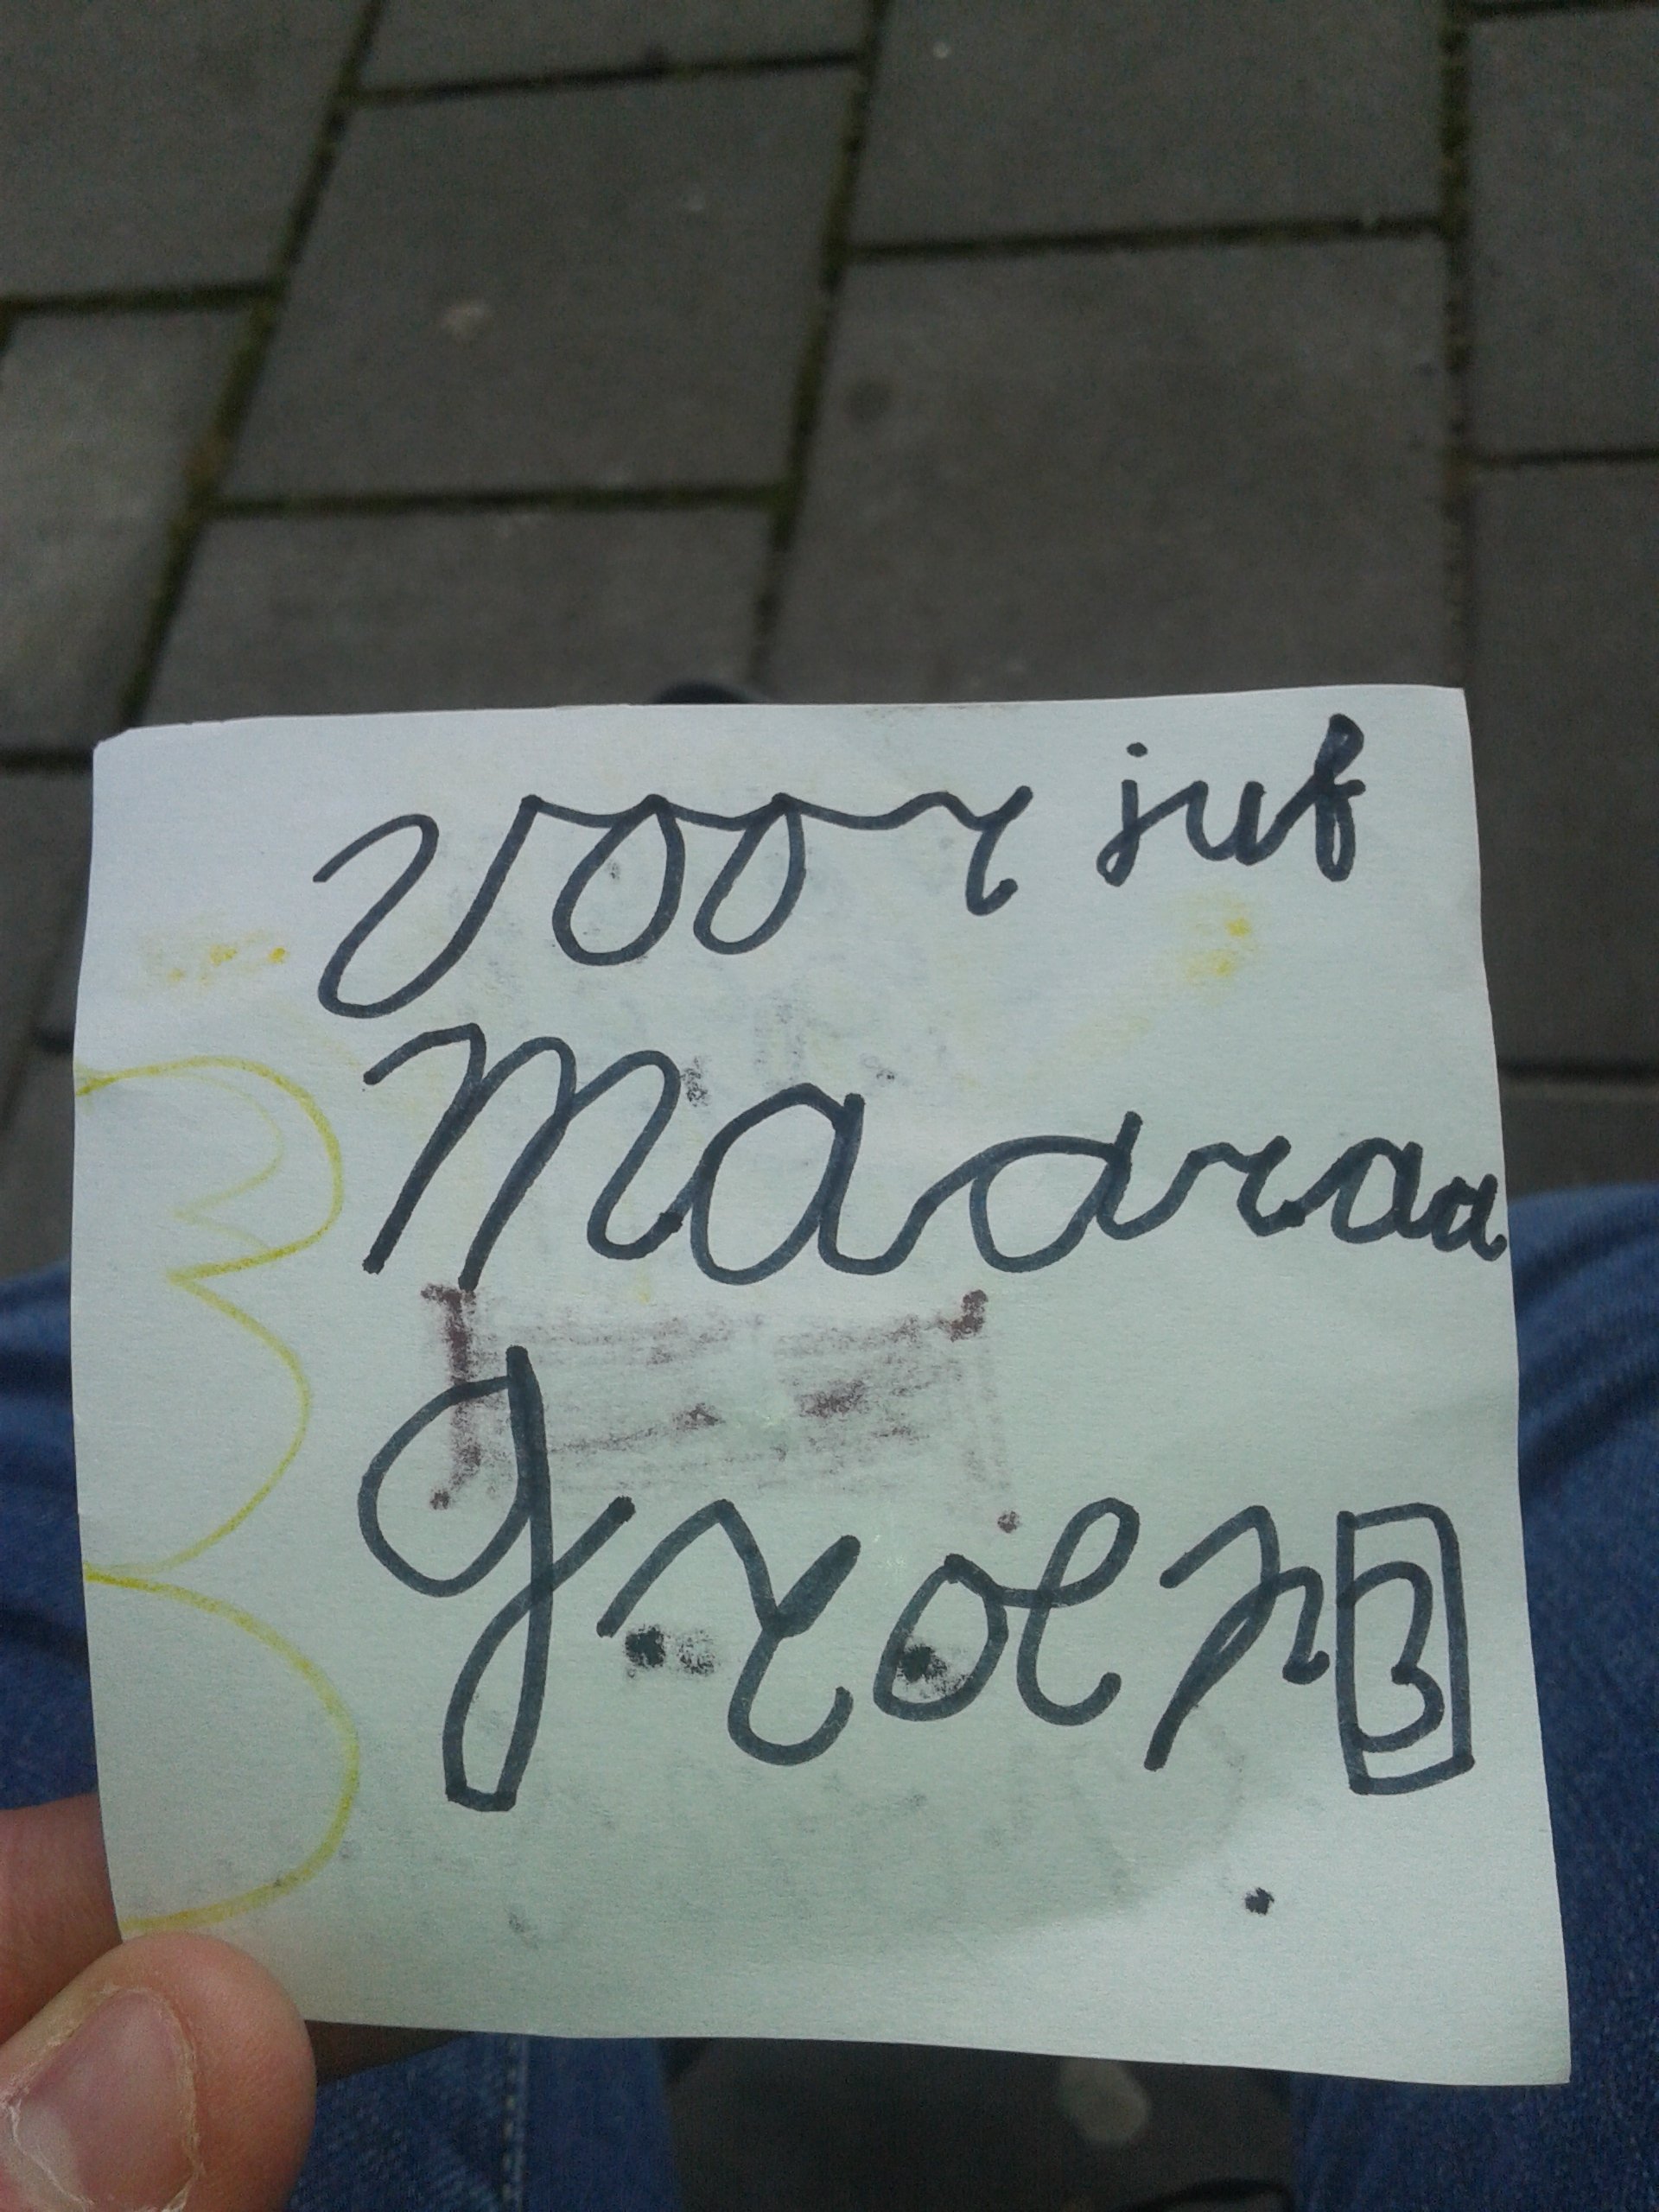 voor juf
Maaraa
groep 3